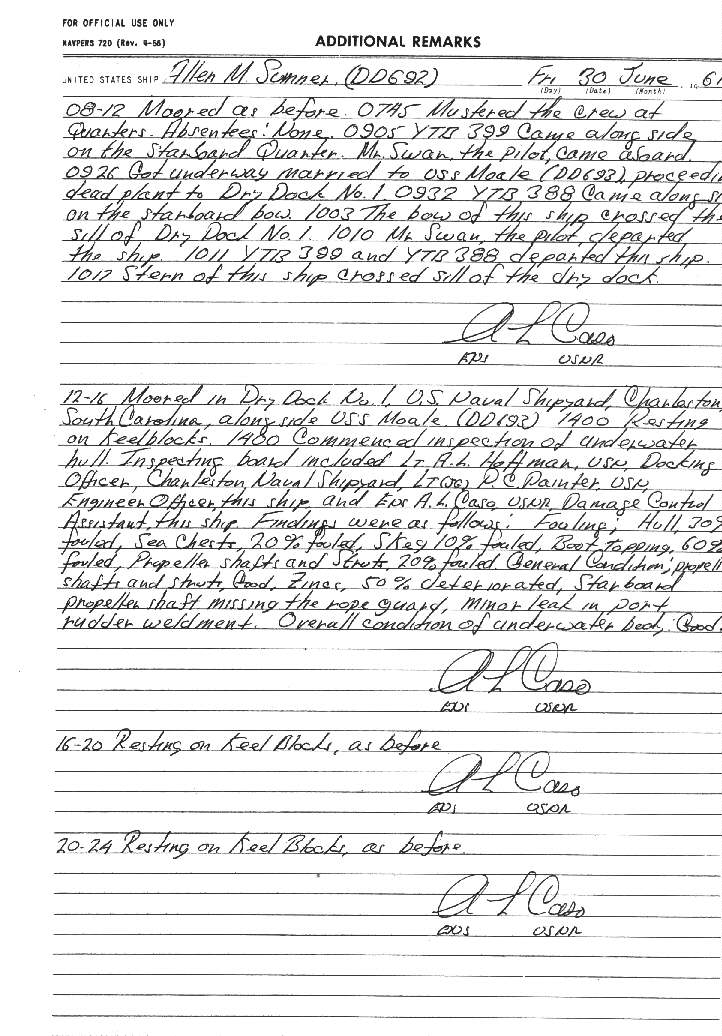 FOR OFFICIAL USE ONLY
NAVPERS 720 (Rev. 4-56)
ADDITIONAL REMARKS
UNITED STATES SHIP Allen M Sumner (DD692) Fri 30 June 1961
(Day) (Date) (Month)
08-12 Moored as before. 0745 Mustered the crew at
Quarters. Absentees: None. 0905 YTB 399 Came along side
on the Starboard Quarter. Mr. Swan, the pilot, came aboard.
0926 Got underway married to USS Moale (DD693), proceedin
dead plant to Dry Dock No. 1. 0932 YTB 388 Came along si
on the starboard bow. 1003 The bow of this ship crossed the
sill of Dry Dock No. 1. 1010 Mr Swan, the pilot, departed
the ship. 1011 YTB 399 and YTB 388 departed thn ship.
1012 Stern of this ship crossed sill of the dry dock.
A L Caso
ENS USNR
12-16 Moored in Dry Dock No. 1, U.S. Naval Shipyard, Charleston
South Carolina, along side USS Moale (DD693) 1400 Resting
on Keelblocks. 1400 Commenced inspection of underwater
hull. Inspecting board included Lt A.L. Hoffman, USN, Docking
Officer, Charleston, Naval Shipyard, LT(JG) D.C. Painter, USN
Engineer Officer, this ship and Ens A.L. Caso, USNR Damage Control
Assistant, this ship Findings were as follows: Fouling; Hull, 30%
fouled, Sea Chests, 20% fouled, Skeg 10% fouled, Boot Topping, 60%
fouled, Propeller shafts and Struts, 20% fouled General Condition; propell
shafts and struts, Good, Zincs, 50% deteriorated, Starboard
propeller shaft missing the rope guard, minor leak in port
rudder weldment. Overall condition of underwater body, Good.
A L Caso
ENS USNR
16-20 Resting on Keel Blocks, as before
A L Caso
ENS USNR
20-24 Resting on Keel Blocks, as before.
A L Caso
ENS USNR